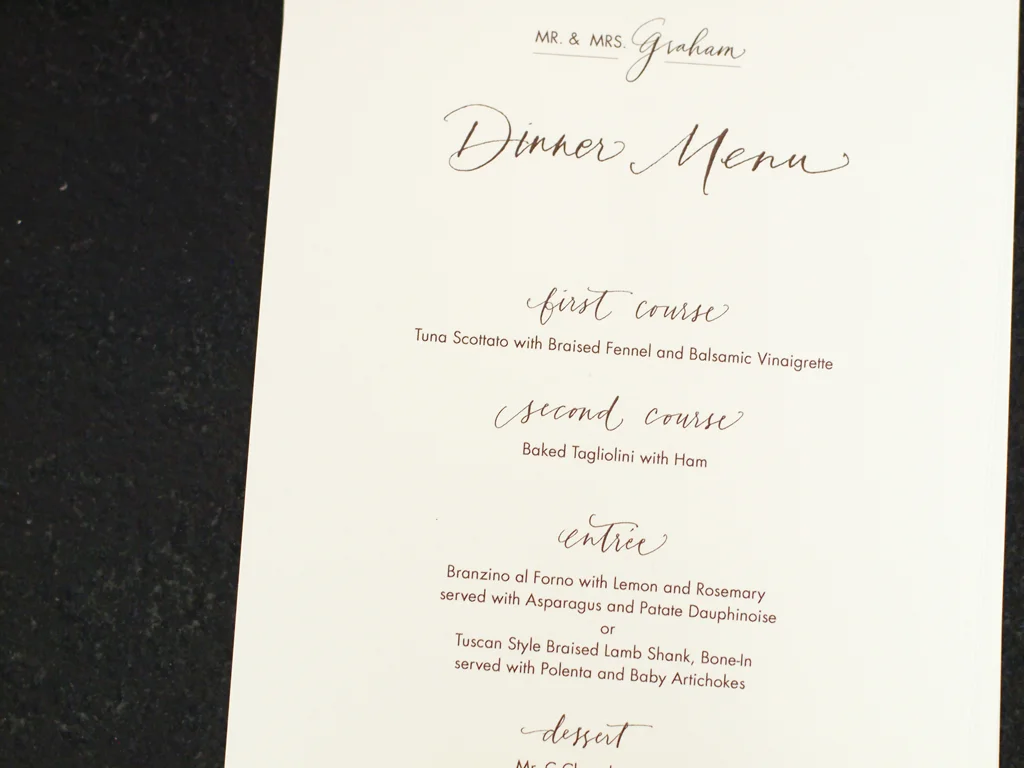 MR. & MRS. Graham
Dinner Menu
first course
Tuna Scottato with Braised Fennel and Balsamic Vinaigrette
second course
Baked Tagliolini with Ham
entrée
Branzino al Forno with Lemon and Rosemary
served with Asparagus and Patate Dauphinoise
or
Tuscan Style Braised Lamb Shank, Bone-In
served with Polenta and Baby Artichokes
dessert
Mr. C